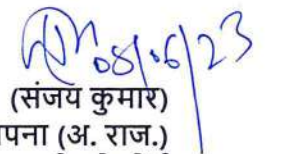 08/06/23
(संजय कुमार)
पना (अ. राज.)